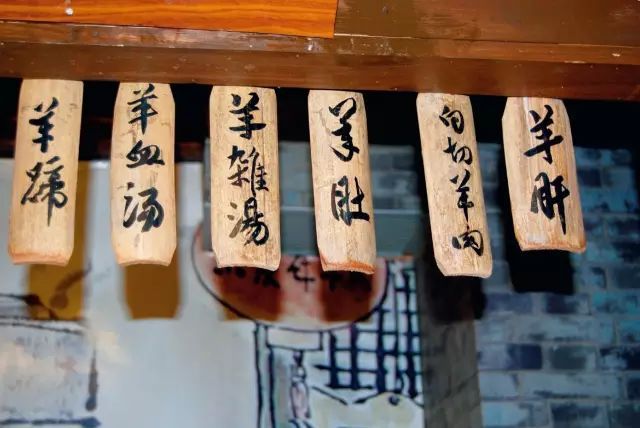 羊蹄
羊血汤
羊雜湯
羊肚
白切羊肉
羊肝